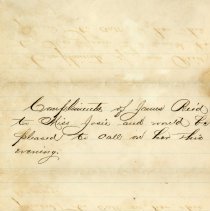 Compliments of James Reid
to Miss Josie and would be
pleased to call on her this
evening.